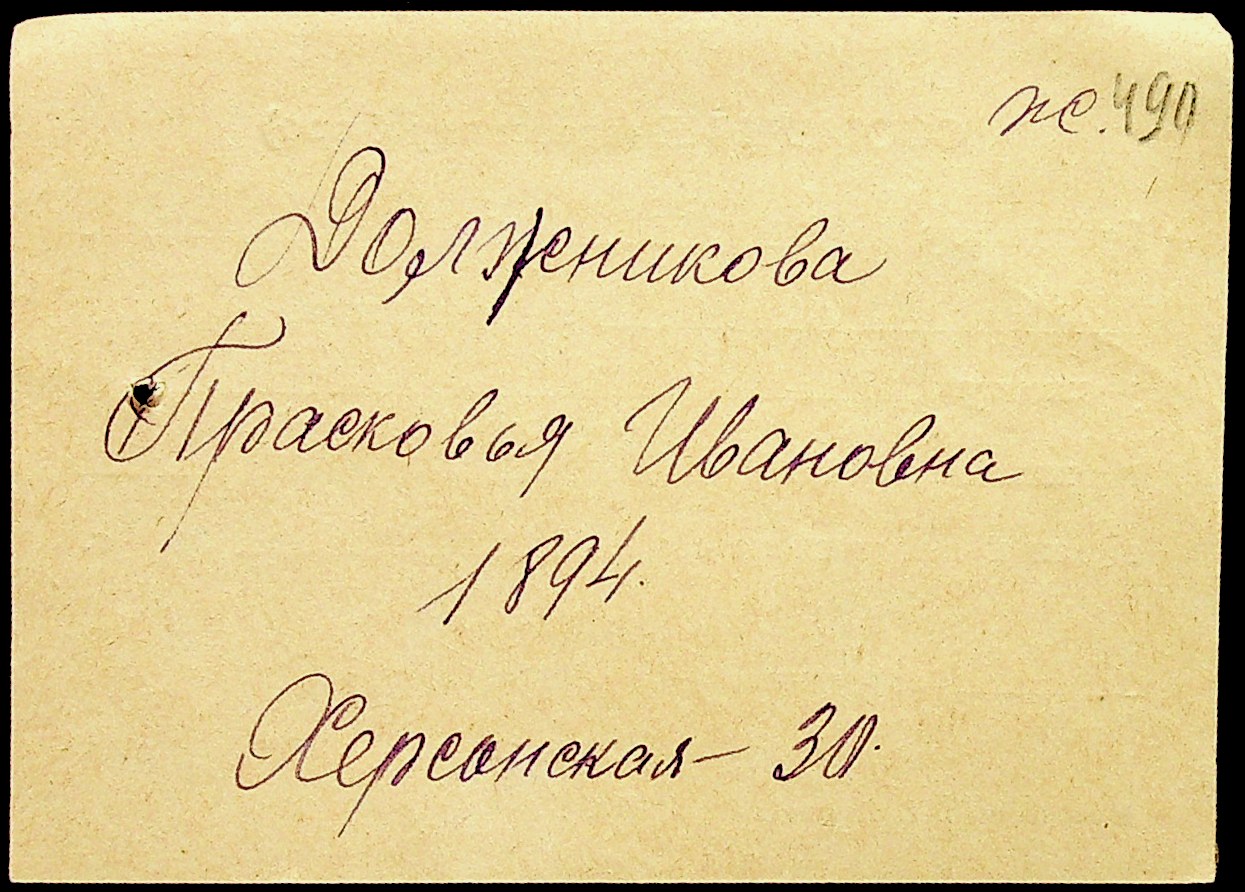 ж. 490
Должникова
Прасковья Ивановна
1894.
Херсонская - 30.